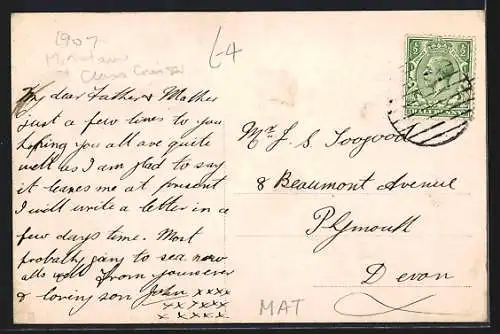 1907
Minotaur
Class Cruiser
£4
My dear Father & Mother
just a few lines to you
hoping you all are quite
well as I am glad to say
it leaves me at present
I will write a letter in a
few days time. Most
probably going to sea now
alls well from your ever
& loving son John xxxx
xxxxxx
x xxxx
HALFPENNY
Mr J. S. Toogood
8 Beaumont Avenue
Plymouth
Devon
MAT